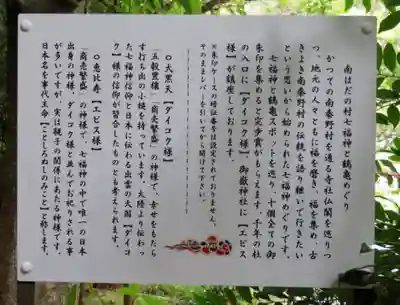 南はだの村七福神と鶴亀めぐり
かつての南秦野村の通る寺社仏閣を巡りつ
つ、地元の人々とともに福を磨き、福を集め、古
きよき南秦野村の伝統を語り継いで行きたい
という思いから始められた七福神めぐりです。
七福神と鶴亀スポットを巡り、十個全ての御
朱印を集めると完歩賞がもらえます。千年の杜
の入口に【ダイコク様】御嶽神社に【エビス
様】が鎮座しております。
※朱印ケースの暗証番号は設定されておりません。
そのままレバーを引いてから開けて下さい。
○大黒天【ダイコク様】
「五穀豊穣」「商売繁盛」の神様で、幸せをもたら
す打ち出の小槌を持っています。大陸より伝わっ
た七福神信仰と日本に伝わる出雲の大国【ダイコ
ク】様の信仰が習合したものとも考えられます。
○恵比寿【エビス様】
「商売繁盛」の神様で、七福神の中で唯一の日本
出身の神様。ダイコク様と並んでお祀りされる事
が多いですが、実は親子の関係にあたる神様です。
日本名を事代主命【ことしろぬしのみこと】と称します。